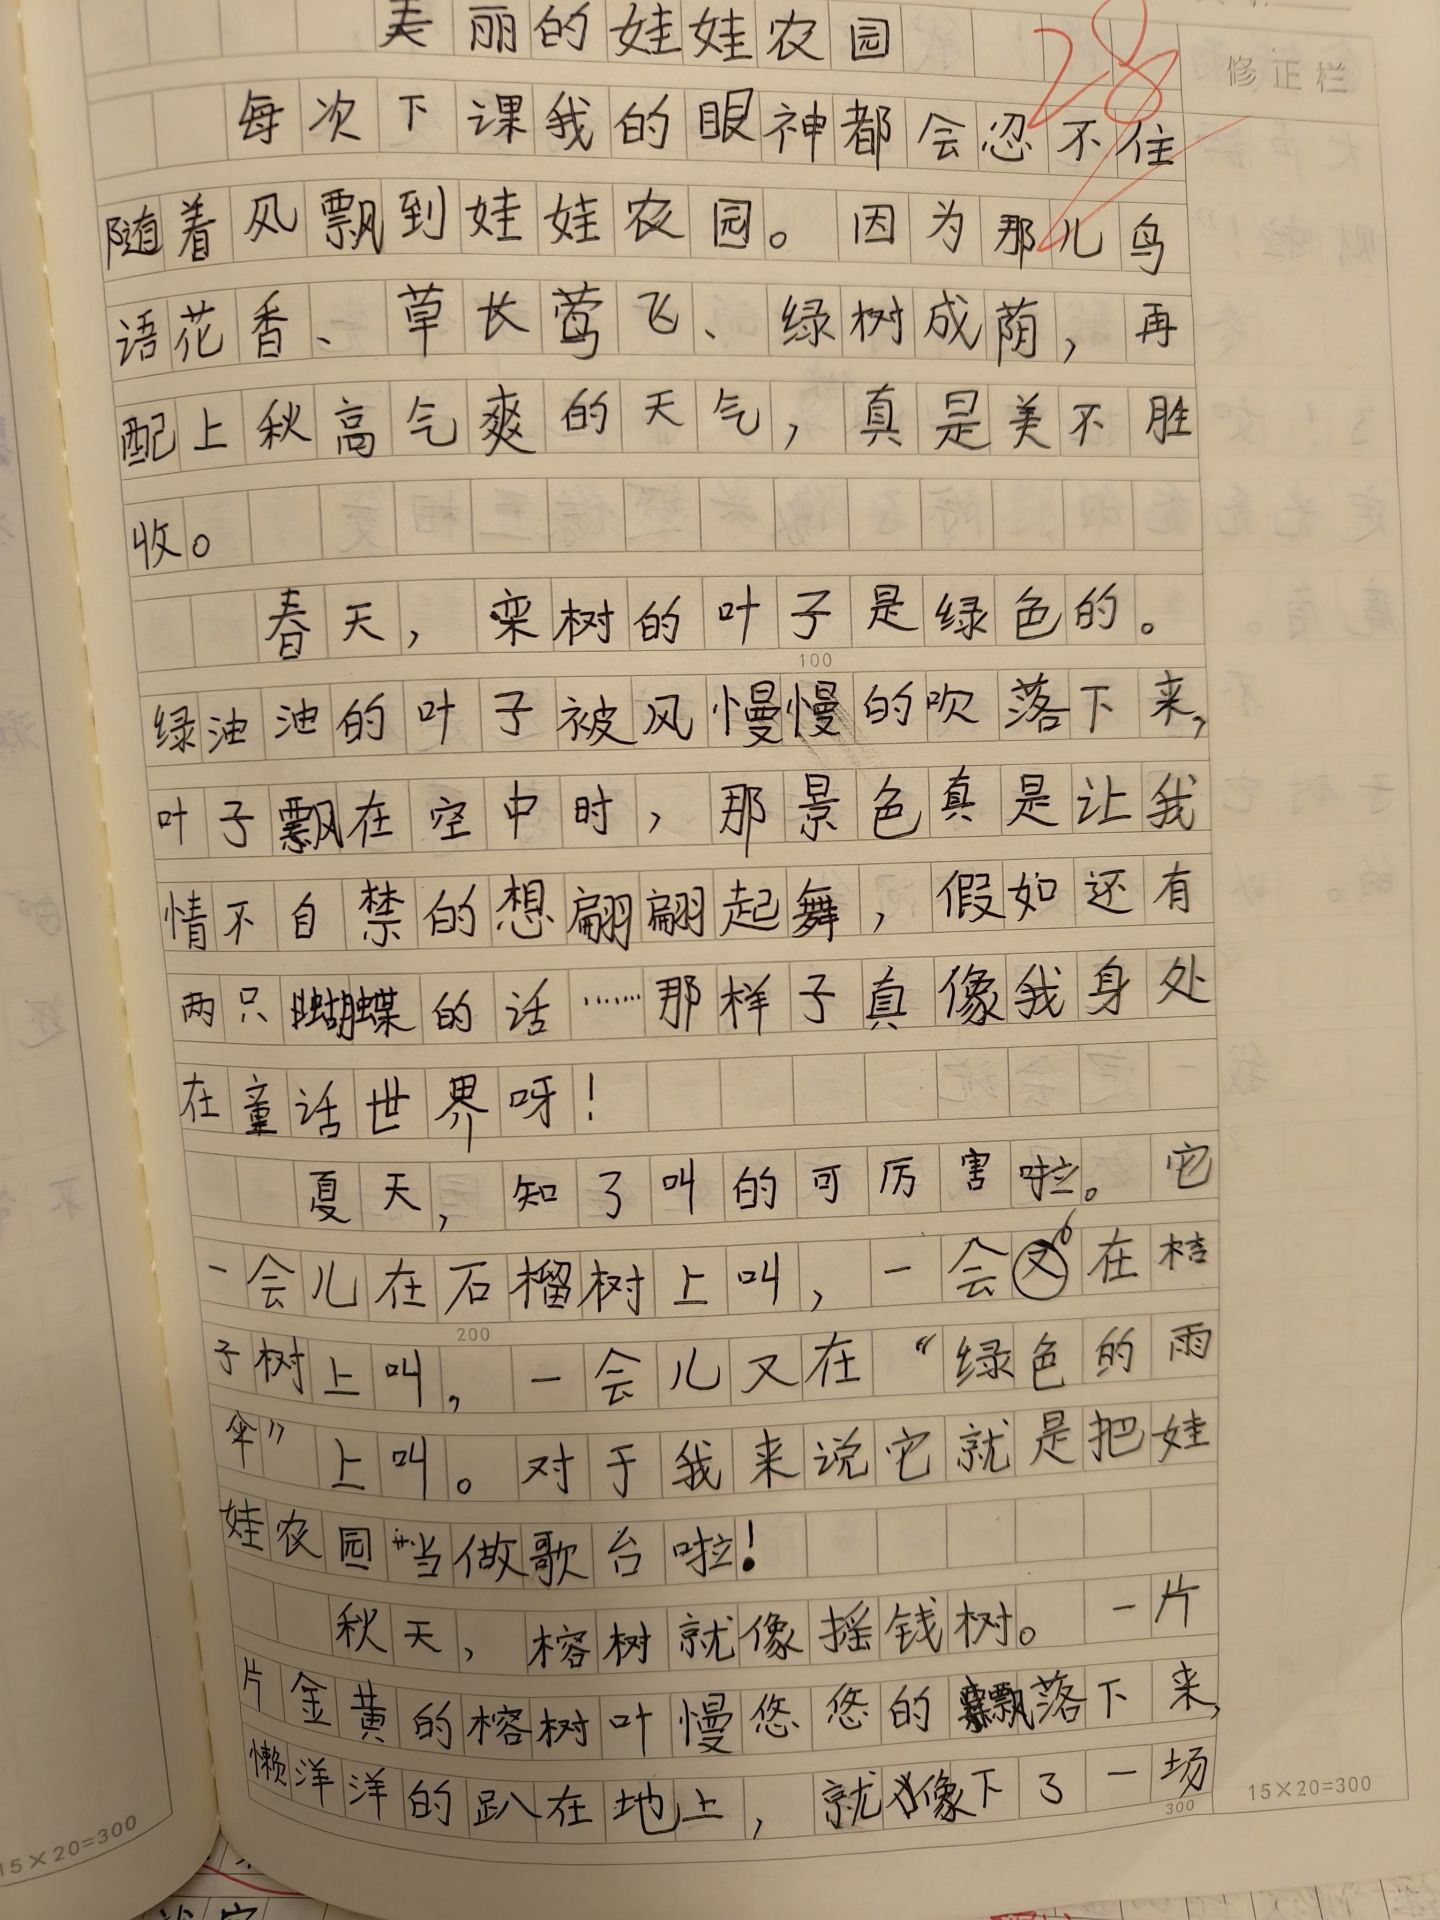 美丽的娃娃农园
28
修正栏
每次下课我的眼神都会忍不住
随着风飘到娃娃农园。因为那儿鸟
语花香、草长莺飞、绿树成荫，再
配上秋高气爽的天气，真是美不胜
收。
春天，栾树的叶子是绿色的。
100
绿油油的叶子被风慢慢的吹落下来，
叶子飘在空中时，那景色真是让我
情不自禁的想翩翩起舞，假如还有
两只蝴蝶的话……那样子真像我身处
在童话世界呀！
夏天，知了叫的可厉害啦。它
一会儿在石榴树上叫，一会又在桔
200
子树上叫，一会儿又在“绿色的雨
伞”上叫。对于我来说它就是把娃
娃农园当做歌台啦！
秋天，榕树就像摇钱树。一片
片金黄的榕树叶慢悠悠的飘落下来，
懒洋洋的趴在地上，就像下了一场
300
15×20=300
15×20=300